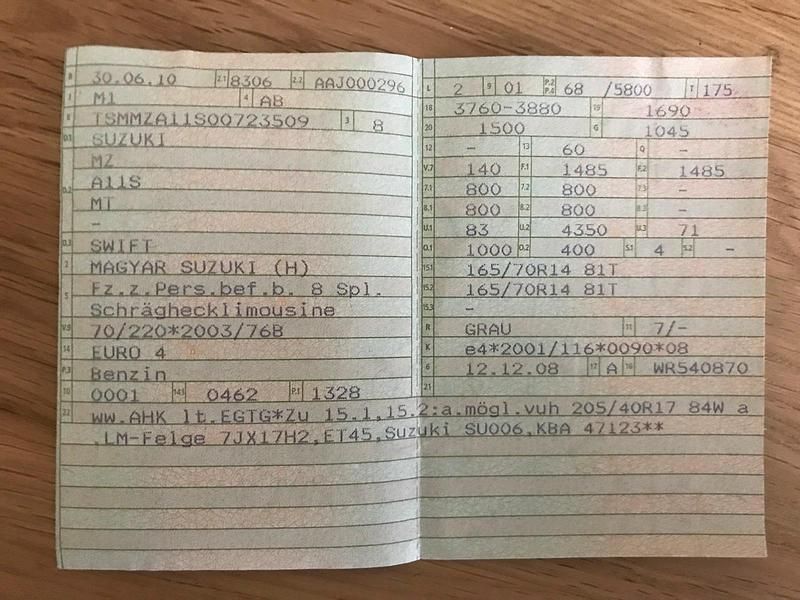 B 30.06.10 2.1 8306 2.2 AAJ000296
J M1 4 AB
E TSMMZA11S00723509 3 8
D.1 SUZUKI
MZ
D.2 A11S
MT
-
D.3 SWIFT
2 MAGYAR SUZUKI (H)
5 Fz.z.Pers.bef.b. 8 Spl.
Schräghecklimousine
V.9 70/220*2003/76B
14 EURO 4
P.3 Benzin
10 0001 14.1 0462 P.1 1328
L 2 9 01 P.2 P.4 68 /5800 T 175
18 3760-3880 19 1690
20 1500 G 1045
12 - 13 60 Q -
V.7 140 F.1 1485 F.2 1485
7.1 800 7.2 800 7.3 -
8.1 800 8.2 800 8.3 -
U.1 83 U.2 4350 U.3 71
O.1 1000 O.2 400 S.1 4 S.2 -
15.1 165/70R14 81T
15.2 165/70R14 81T
15.3 -
R GRAU 11 7/-
K e4*2001/116*0090*08
6 12.12.08 17 A 16 WR540870
21
22 WW.AHK lt.EGTG*Zu 15.1,15.2:a.mögl.vuh 205/40R17 84W a
.LM-Felge 7JX17H2,ET45,Suzuki SU006,KBA 47123**